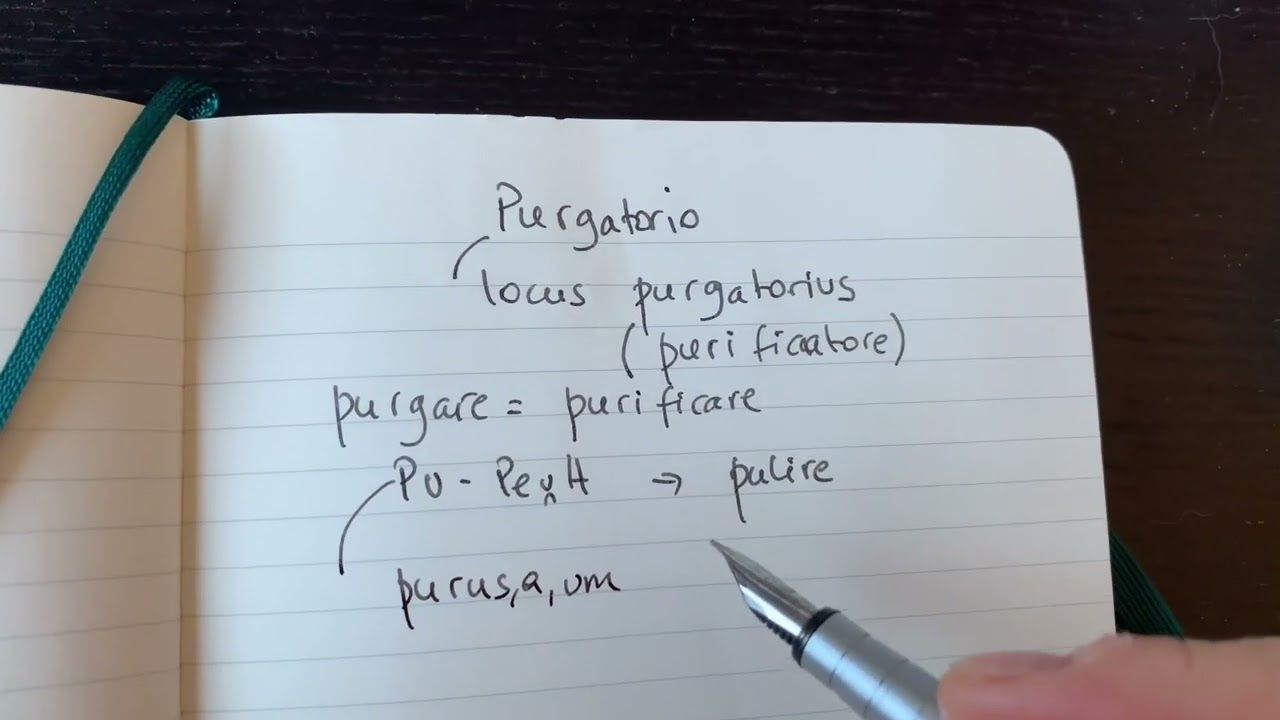 Purgatorio
locus purgatorius
(purificatore)
purgare = purificare
PU - Peu̯H → pulire
purus, a, um